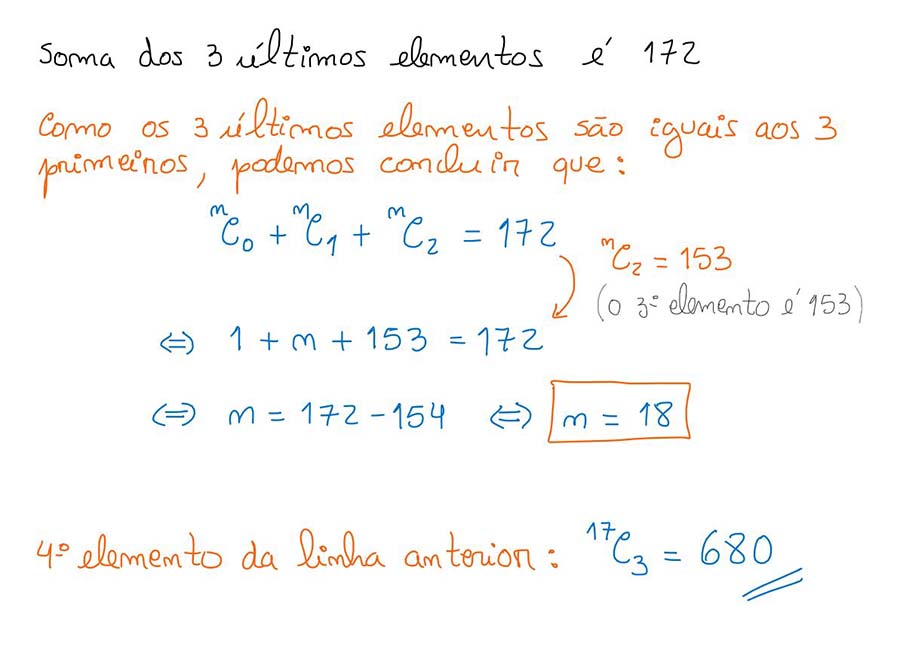 Soma dos 3 últimos elementos é 172
Como os 3 últimos elementos são iguais aos 3
primeiros, podemos concluir que:
ⁿC₀ + ⁿC₁ + ⁿC₂ = 172
ⁿC₂ = 153
(o 3º elemento é 153)
⇔ 1 + n + 153 = 172
⇔ n = 172 - 154 ⇔ n = 18
4º elemento da linha anterior: ¹⁷C₃ = 680